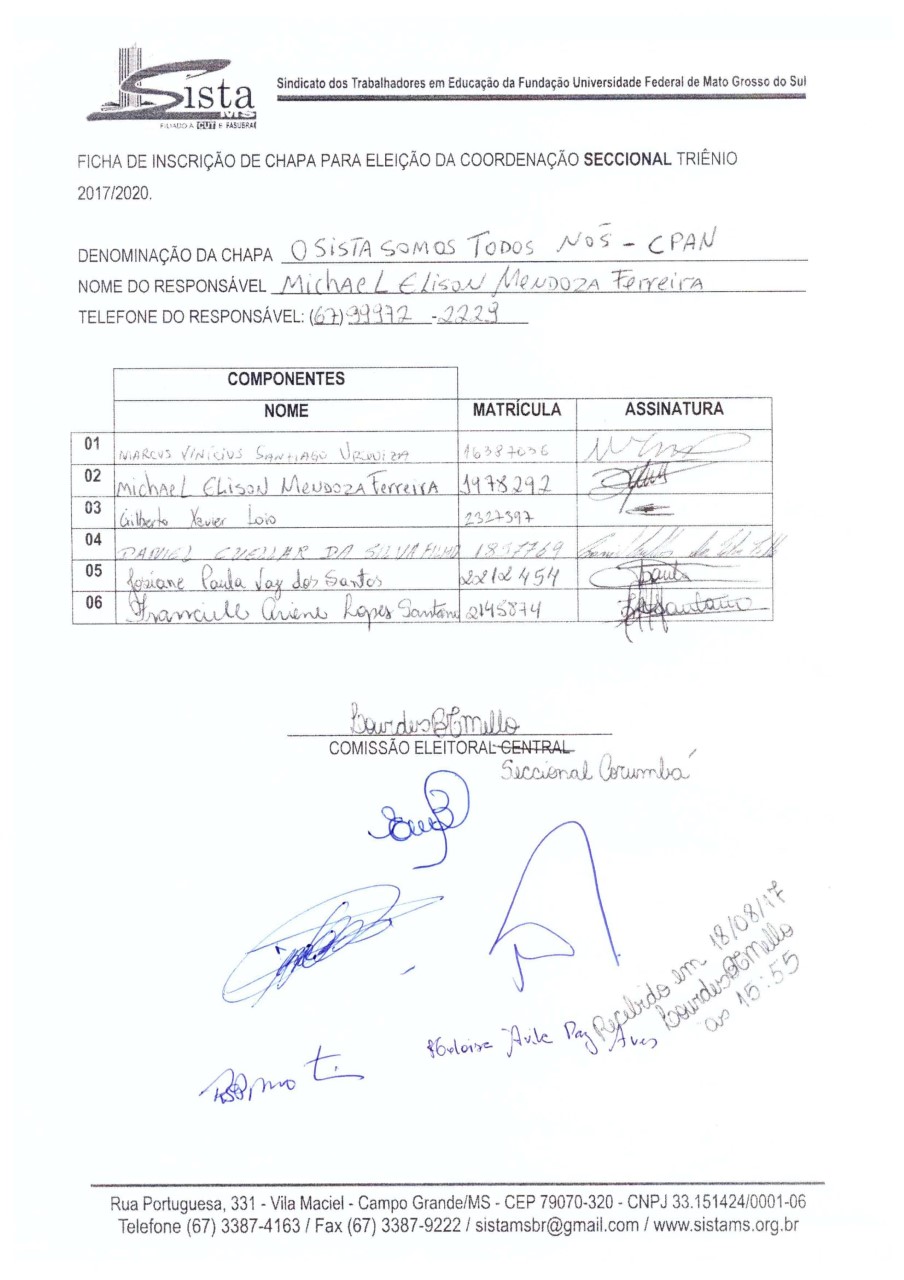 Sista
MS
FILIADO A CUT E FASUBRA
Sindicato dos Trabalhadores em Educação da Fundação Universidade Federal de Mato Grosso do Sul
FICHA DE INSCRIÇÃO DE CHAPA PARA ELEIÇÃO DA COORDENAÇÃO SECCIONAL TRIÊNIO
2017/2020.
DENOMINAÇÃO DA CHAPA O SISTA SOMOS TODOS NÓS - CPAN
NOME DO RESPONSÁVEL Michael Elison Mendoza Ferreira
TELEFONE DO RESPONSÁVEL: (67) 99972 - 2229
COMPONENTES
NOME MATRÍCULA ASSINATURA
01 MARCUS VINICIUS SANTIAGO URQUIZA 16387036
02 Michael Elison Mendoza Ferreira 1978292
03 Gilberto Xavier Loio 2327397
04 DANIEL CUELLAR DA SILVA FILHO 1837769
05 Josiane Paula Vaz dos Santos 2212454
06 Francielle Ariene Lopes Santana 2145874
LourdesBTMello
COMISSÃO ELEITORAL CENTRAL
Seccional Corumbá
Recebido em 18/08/17
LourdesBTMello
às 15:55
Heloisa Avila Paz Aves
Rua Portuguesa, 331 - Vila Maciel - Campo Grande/MS - CEP 79070-320 - CNPJ 33.151424/0001-06
Telefone (67) 3387-4163 / Fax (67) 3387-9222 / sistamsbr@gmail.com / www.sistams.org.br